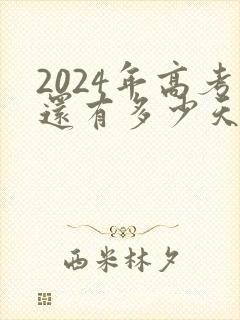 2024年高考
還有多少天
西米林夕